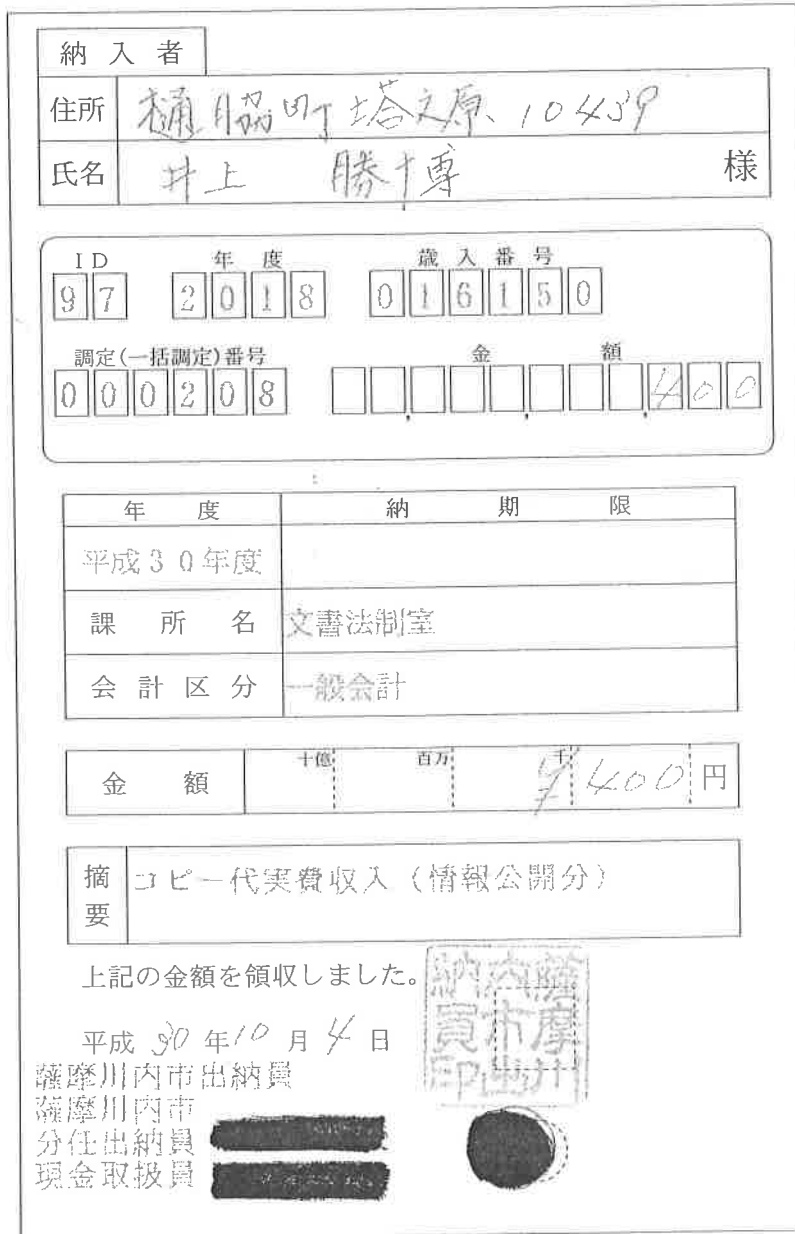 納入者
住所 樋脇町塔之原、10439
氏名 井上 勝博 様
ID 年度 歳入番号
97 2018 016150
調定(一括調定)番号 金額
000208 400
年度 納期限
平成30年度
課所名 文書法制室
会計区分 一般会計
金額 十億 百万 千 ¥400円
摘要 コピー代実費収入(情報公開分)
上記の金額を領収しました。
平成30年10月4日
薩摩川内市出納員
薩摩川内市
分任出納員
現金取扱員
薩摩川
内市出
納員印